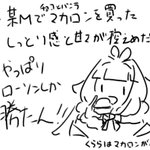 チョコとバニラ
某Mでマカロンを買った
しっとり感と甘さが控えめだ
やっぱり
ローソンしか
勝たん!
くららはマカロンが